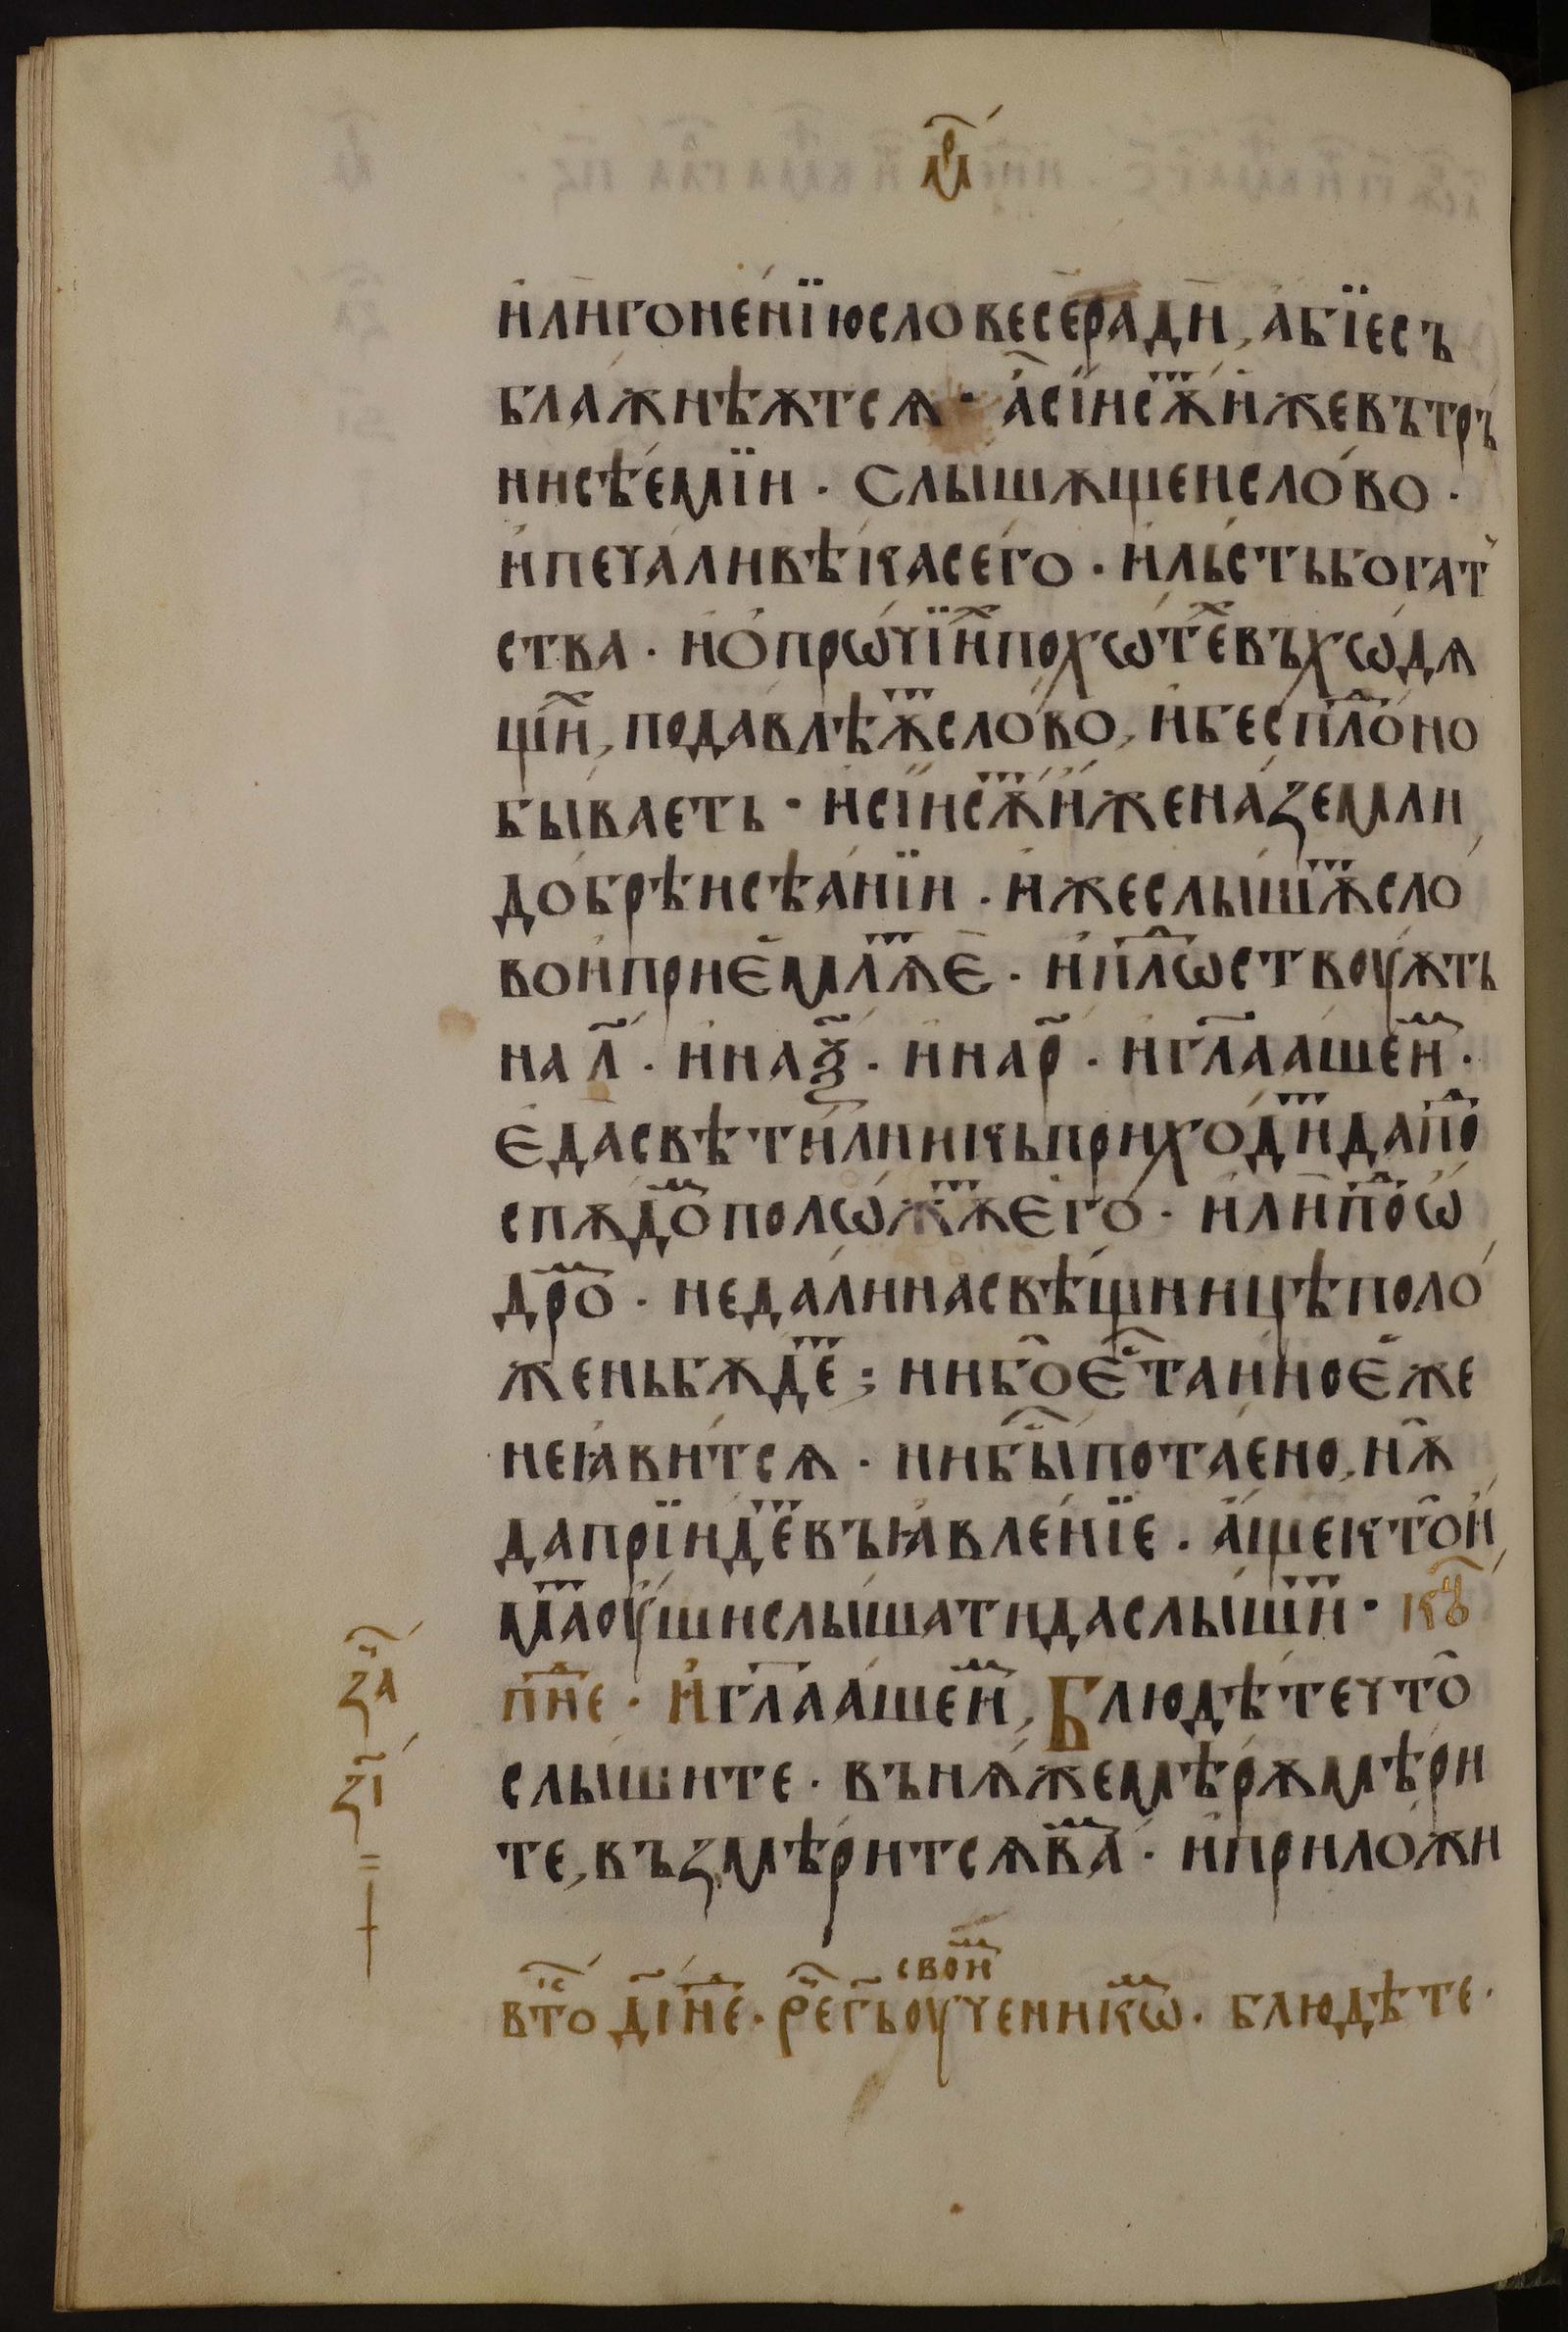 мр҃
и҆лигоне́нїюсловесера́ди, а҆бїесъ
блажнѣѫтсѧ · а҆сїисѫ҆́и҆жевътръ
нисѣ́емїи · слышѫщеисло́во ·
и҆печаливѣкасего́ · и҆льстьбогат
ства · и҆ѻ҆прѡ́чїи҆похѡтевъхѡ́дѧ
щи, подавлѣѫсло́во, и҆бесплоно
быва́еть · и҆сїисѫи҆́женаземли
добрѣисѣ́анїи · и҆жеслы́шѫсло
вои҆приємлѧє · и҆плѡствоуѫть
нал҃ · и҆наѯ҃ · и҆нар҃ · и҆гл҃аашеи ·
єдасвѣти́лникьприхо́дидапо
спѫдополѡ́жѫєго · и҆липоѡ
дро · недалинасвѣщницѣполо
женьбѫде ; нибоєтаи́ноєже
неꙗви́тсѧ · нибыпота́ено, нѫ
даприидевъꙗвле́нїе · а҆́щектои
маоу́шислы́шатидаслы́ши · кѡ҃
пне · И҆гл҃аашеи, Блюдѣтечто
слы́шите · вънѫ́жемѣ́рѫмѣ́ри
те, възмѣритсѧва · и҆приложи
за҃
зі҃
свои
вто ді҃не · рег҃ьоученикѡ · блюдѣте ·